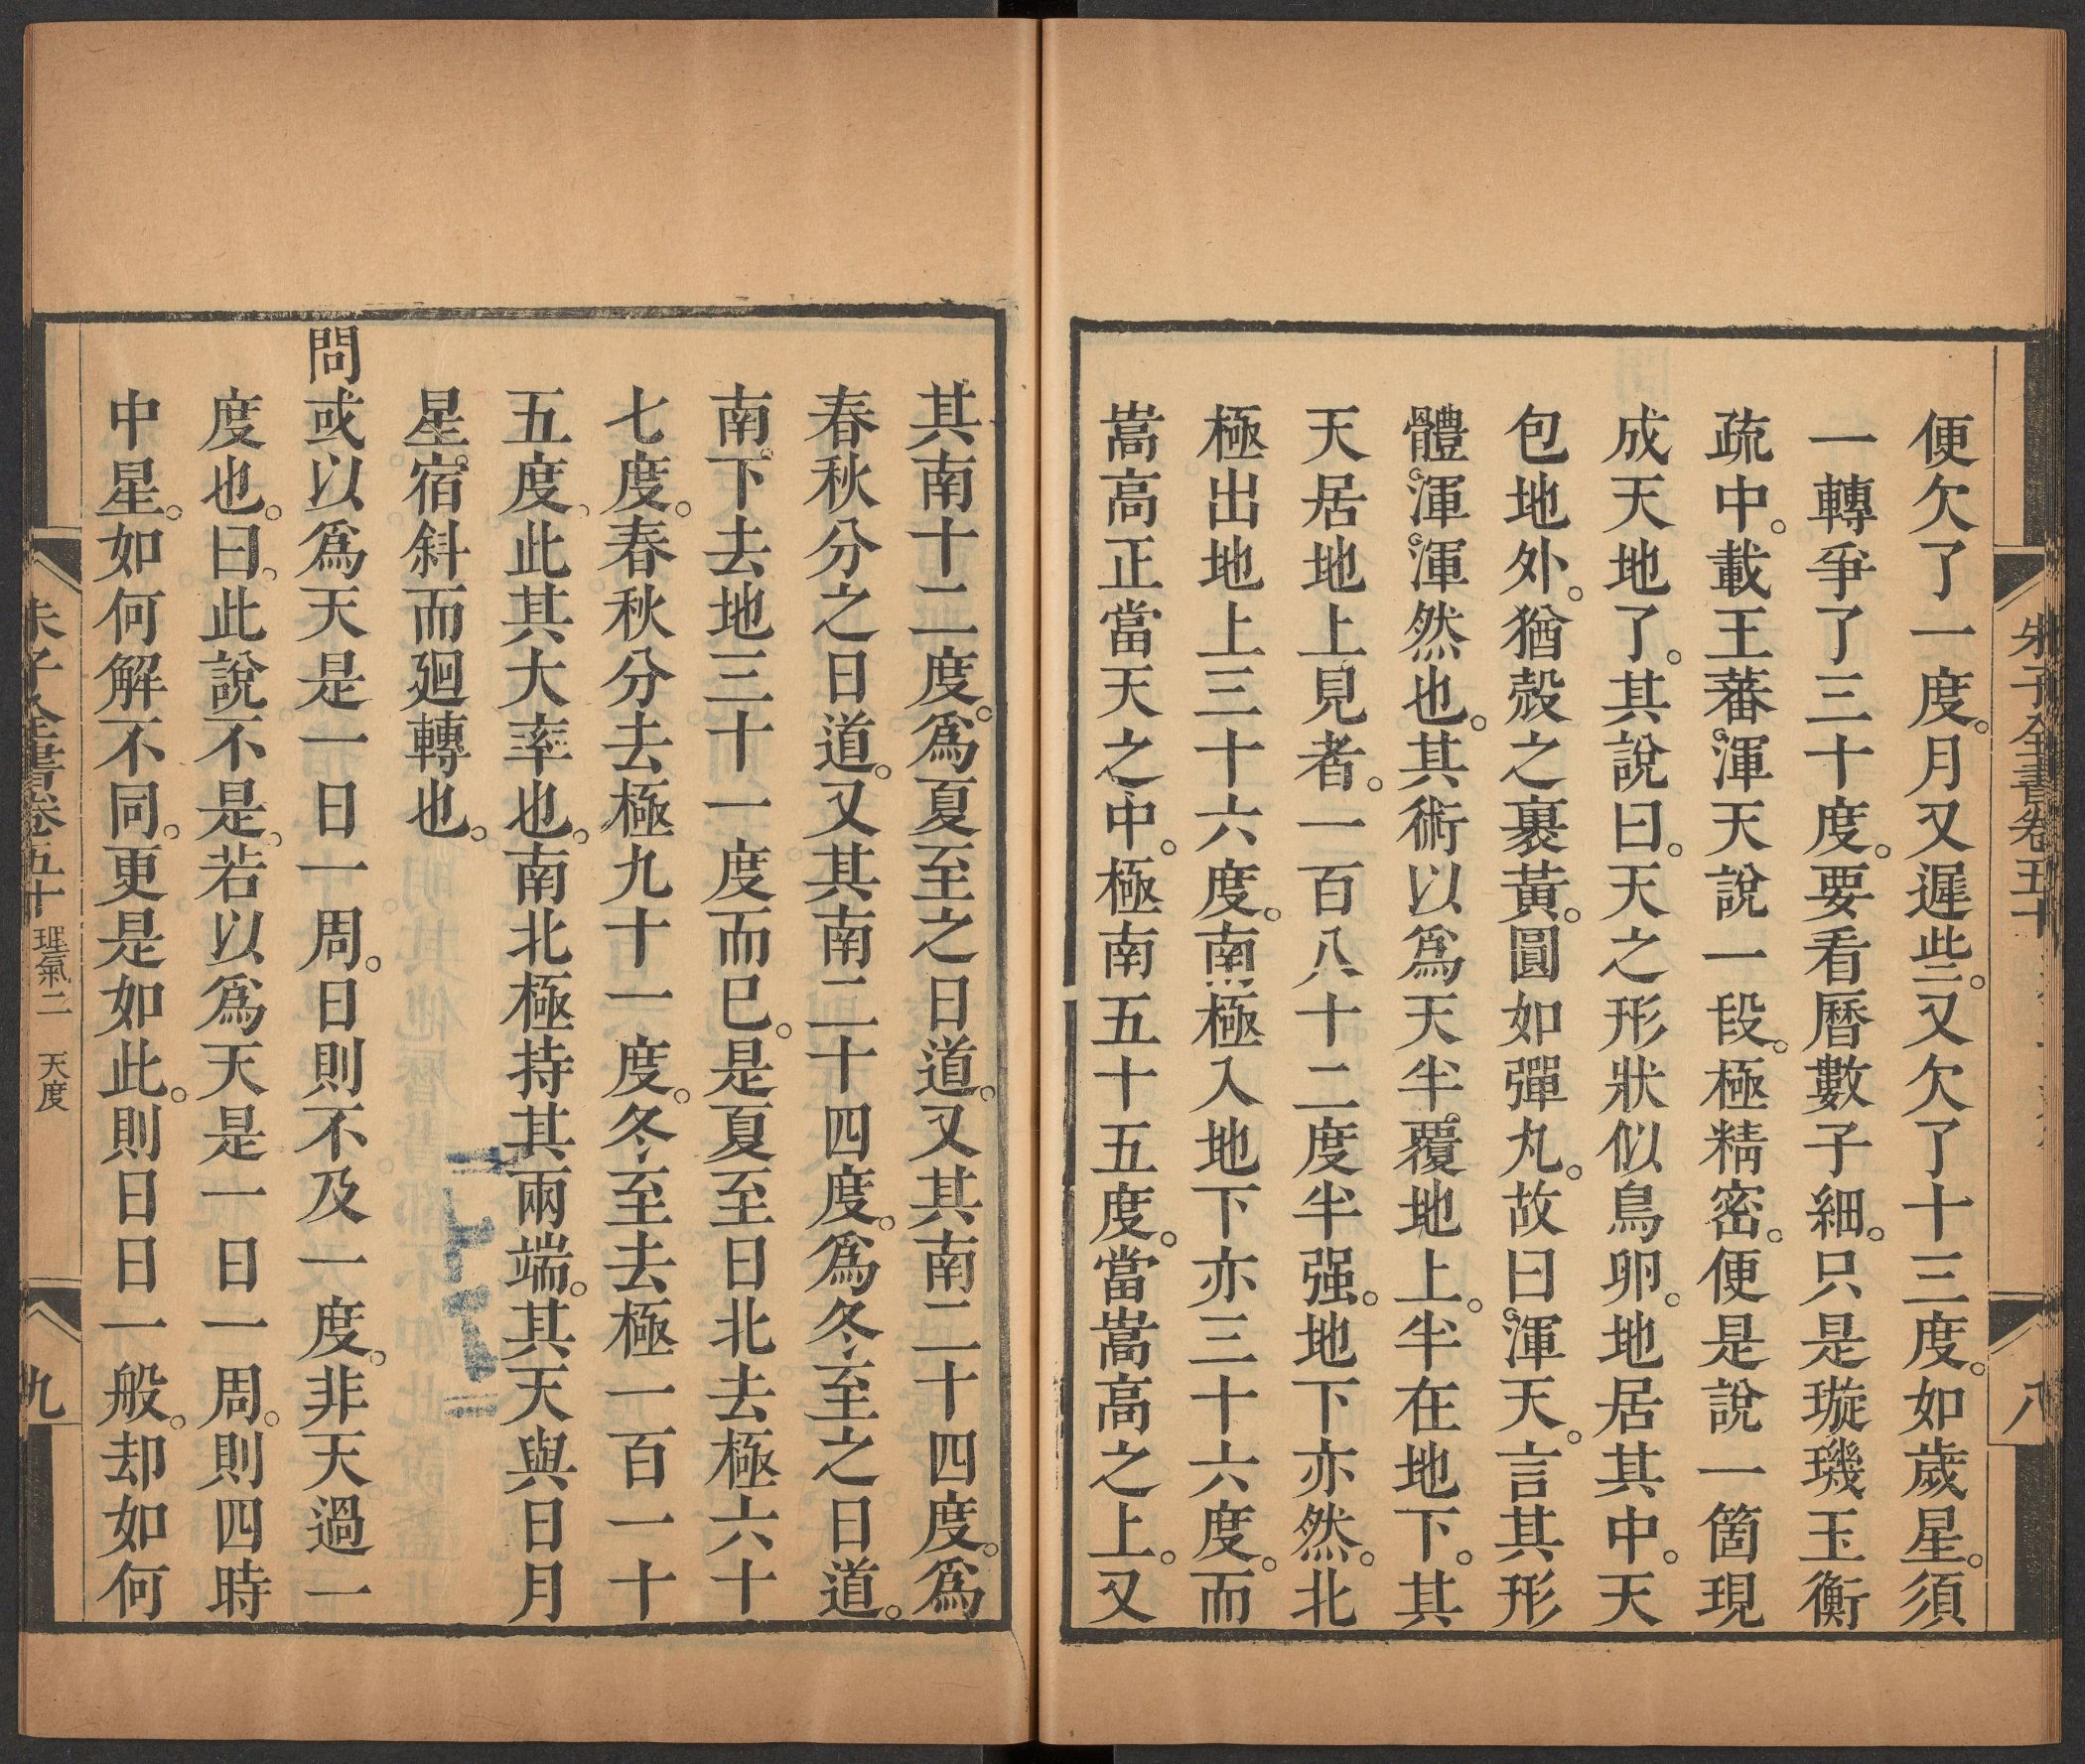 朱子全書卷五十
八
便欠了一度。月又遲些。又欠了十三度。如歲星。須
一轉爭了三十度。要看曆數子細。只是璇璣玉衡
疏中。載王蕃渾天說一段。極精密。便是說一箇現
成天地了。其說曰。天之形狀似鳥卵。地居其中。天
包地外。猶殼之裹黃。圓如彈丸。故曰渾天。言其形
體渾渾然也。其術以爲天半覆地上。半在地下。其
天居地上見者。一百八十二度半强。地下亦然。北
極出地上三十六度。南極入地下亦三十六度。而
嵩高正當天之中。極南五十五度。當嵩高之上。又
其南十二度。爲夏至之日道。又其南二十四度。爲
春秋分之日道。又其南二十四度。爲冬至之日道。
南下去地三十一度而已。是夏至日北去極六十
七度。春秋分去極九十一度。冬至去極一百一十
五度。此其大率也。南北極持其兩端。其天與日月
星宿斜而廻轉也。
問或以爲天是一日一周。日則不及一度。非天過一
度也。曰。此說不是。若以爲天是一日一周。則四時
中星。如何解不同。更是如此。則日日一般。却如何
朱子全書卷五十 理氣二 天度
九